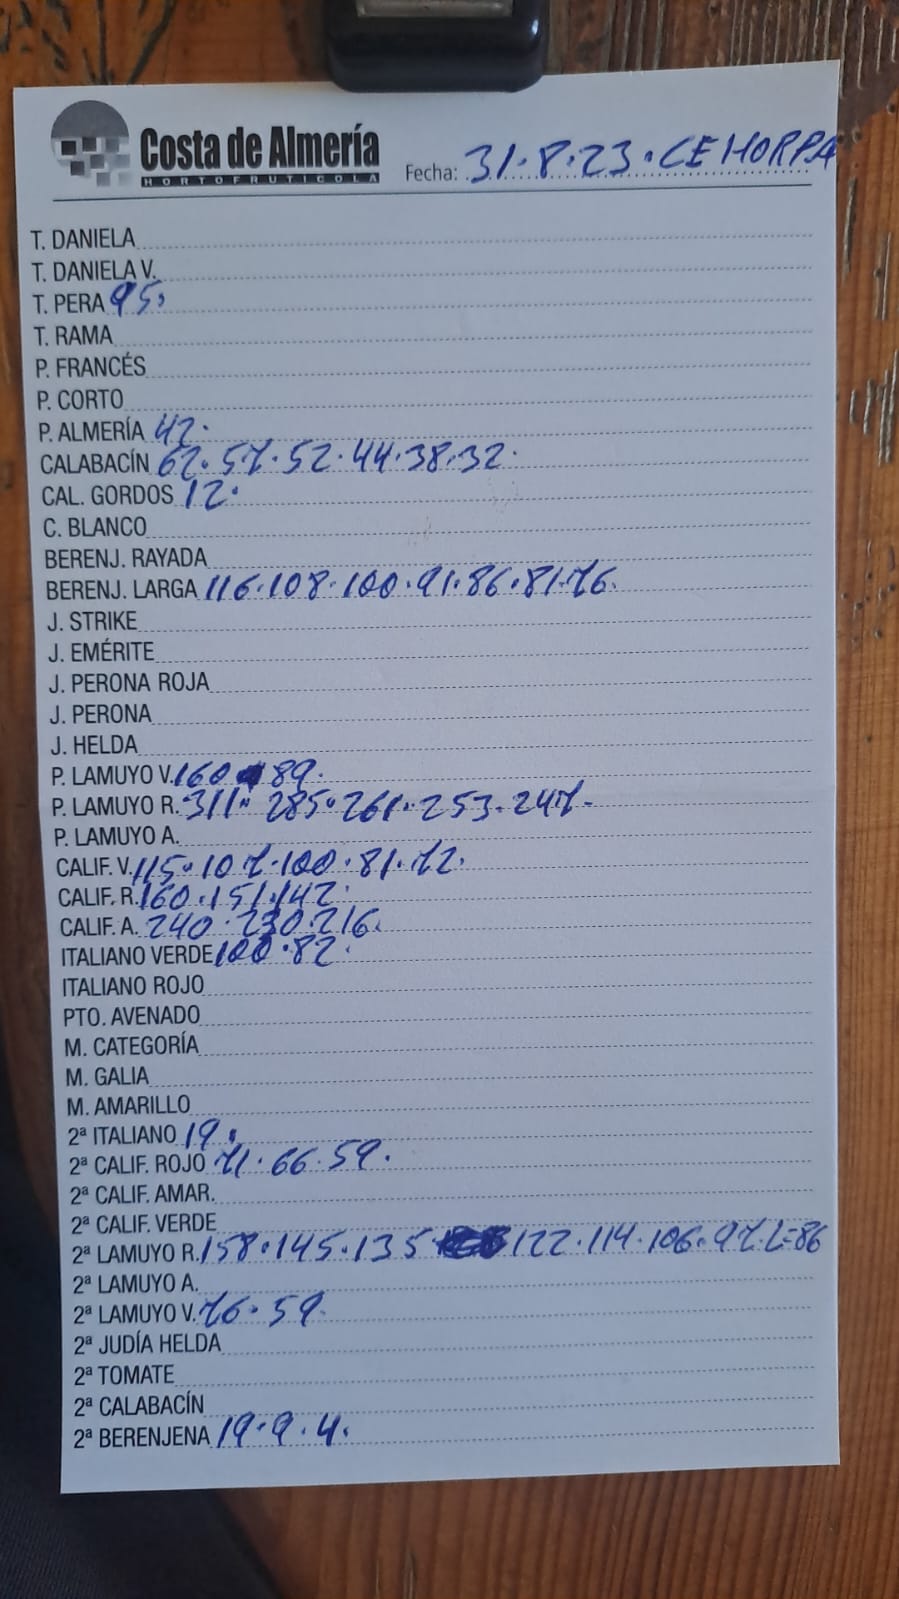 Costa de Almería
HORTOFRUTICOLA
Fecha: 31.8.23.CEHORPA
T. DANIELA
T. DANIELA V.
T. PERA 95.
T. RAMA
P. FRANCÉS
P. CORTO
P. ALMERÍA 42.
CALABACÍN 62.57.52.44.38.32.
CAL. GORDOS 12.
C. BLANCO
BERENJ. RAYADA
BERENJ. LARGA 116.108.100.91.86.81.76.
J. STRIKE
J. EMÉRITE
J. PERONA ROJA
J. PERONA
J. HELDA
P. LAMUYO V. 160 89.
P. LAMUYO R. 311. 285.261.253.247.
P. LAMUYO A.
CALIF. V. 115.107.100.81.72.
CALIF. R. 160.151.142.
CALIF. A. 240.230.216.
ITALIANO VERDE 100.82.
ITALIANO ROJO
PTO. AVENADO
M. CATEGORÍA
M. GALIA
M. AMARILLO
2ª ITALIANO 19.
2ª CALIF. ROJO 71.66.59.
2ª CALIF. AMAR.
2ª CALIF. VERDE
2ª LAMUYO R. 158.145.135 122.114.106.97.L=86
2ª LAMUYO A.
2ª LAMUYO V. 76.59.
2ª JUDÍA HELDA
2ª TOMATE
2ª CALABACÍN
2ª BERENJENA 19.9.4.